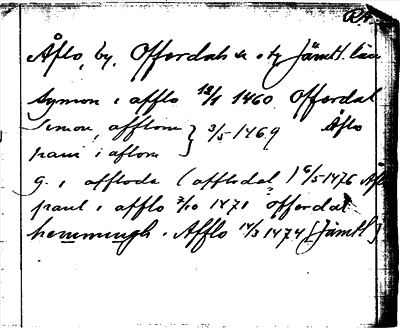 RA.
Åflo, by, Offerdals sn o tg Jämtl. län
symon i afflo 13/1 1460 Offerdal
Simon, afflom } 3/5 1469 Åflo
paui i aflom
g. i affloda (afflodal) 6/5 1476 Åfl
paul i afflo 7/10 1471 Offerdal
hemmingh i Afflo 14/3 1474 [Jämtl]